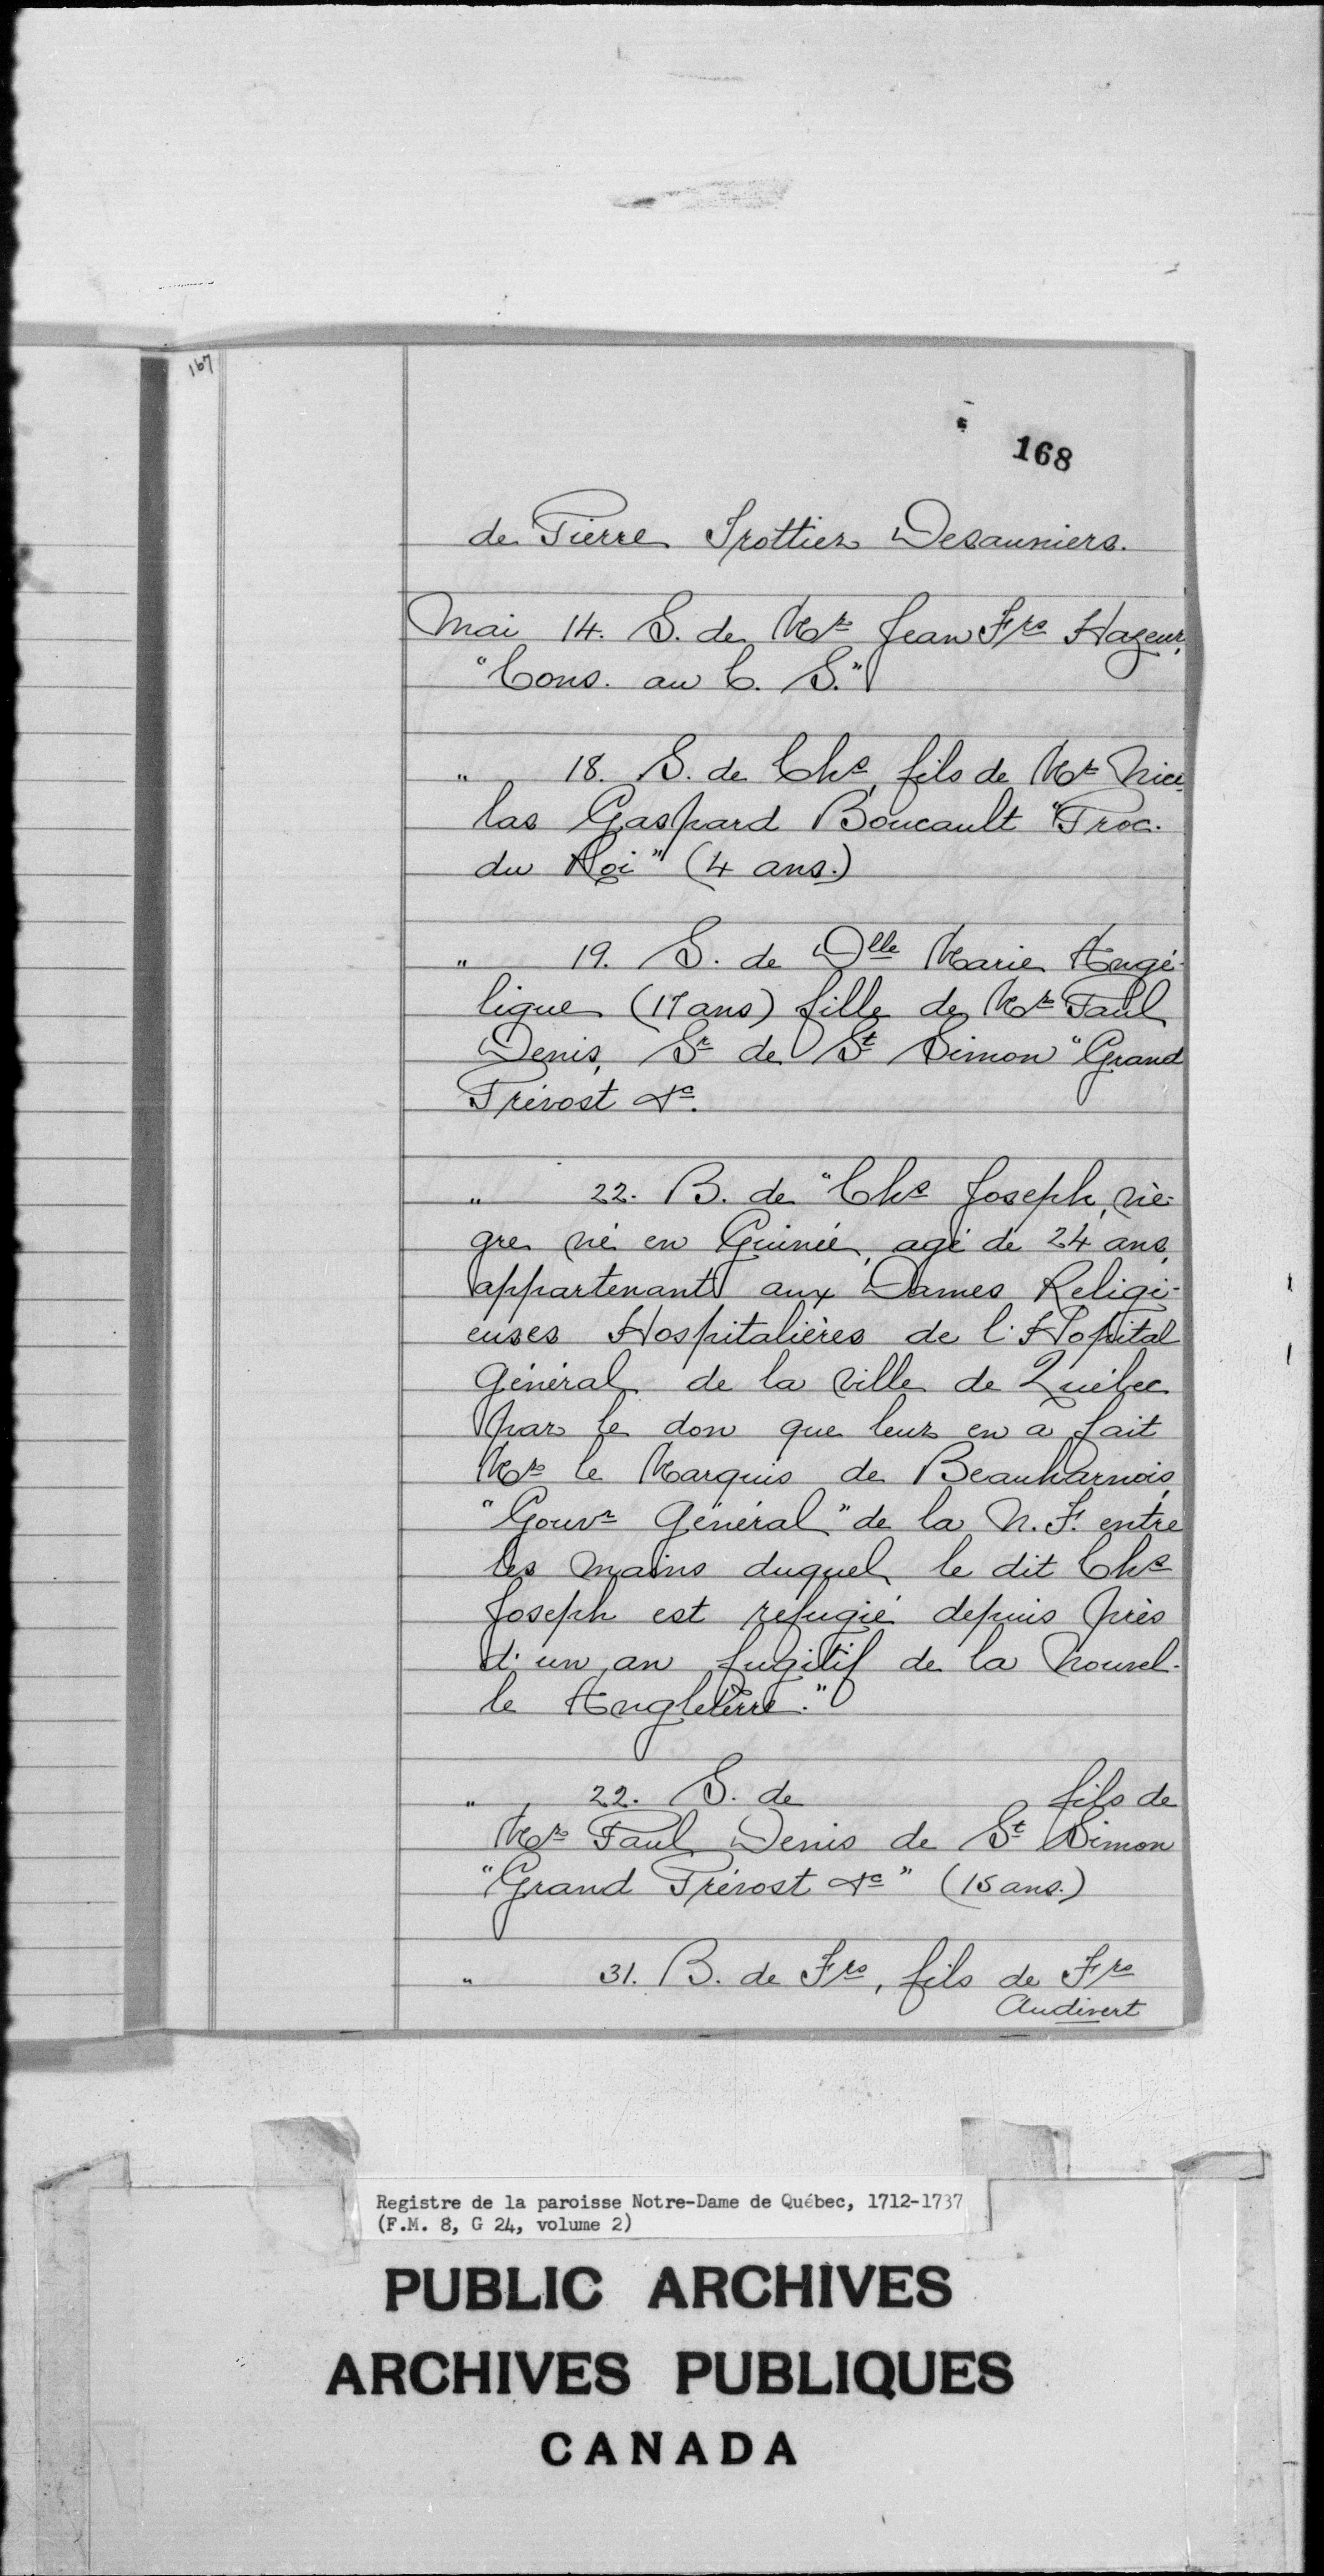 167
168
de Pierre Trottier Desauniers.
Mai 14. S. de Mr Jean Frs Hazeur,
"Cons. au C. S."
" 18. S. de Chs, fils de Mr Nico-
las Gaspard Boucault "Proc.
du Roi" (4 ans.)
" 19. S. de Dlle Marie Angé-
lique (17 ans) fille de Mr Paul
Denis, Sr de St Simon "Grand
Prévost &c.
" 22. B. de "Chs Joseph, nè-
gre né en Guinée, agé de 24 ans,
appartenant aux Dames Religi-
euses Hospitalières de l'Hopital
Général de la ville de Québec
par le don que leur en a fait
Mr le Marquis de Beauharnois,
"Gouvr Général" de la N. F. entre
les mains duquel le dit Chs
Joseph est refugié depuis près
d'un an fugitif de la Nouvel-
le Angleterre."
" 22. S. de fils de
Mr Paul Denis de St Simon
"Grand Prévost &c" (15 ans.)
" 31. B. de Frs, fils de Frs
Audivert
Registre de la paroisse Notre-Dame de Québec, 1712-1737
(F.M. 8, G 24, volume 2)
PUBLIC ARCHIVES
ARCHIVES PUBLIQUES
CANADA